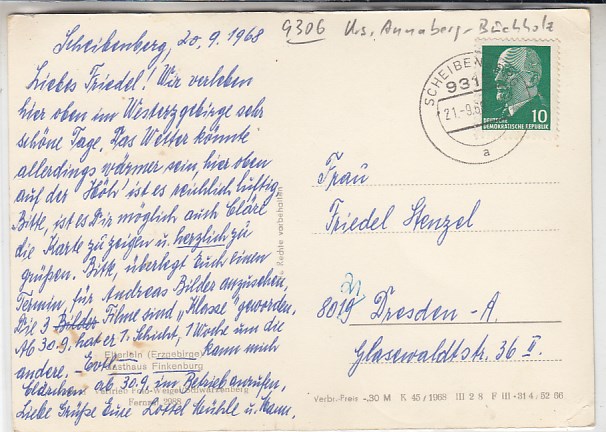 9306 Krs. Annaberg-Buchholz
Scheibenberg, 20.9.1968
Liebes Friedel! Wir verleben
hier oben im Westerzgebirge sehr
schöne Tage. Das Wetter könnte
allerdings wärmer sein, hier oben
auf der "Höh" ist es reichlich luftig.
Bitte, ist es Dir möglich auch Cläre
die Karte zu zeigen u. herzlich zu
grüßen. Bitte, überlegt Euch einen
Termin, für Andreas Bilder anzusehen,
Die 3 Bilder Filme sind "Klasse" geworden.
Ab 30.9. hat er 1. Schicht, 1 Woche um die
andere. Evtl. kann mich
Clärchen ab 30.9. im Betrieb anrufen,
Liebe Grüße Eure Lottel Mühle u. Mann.
Elterlein (Erzgebirge)
Gasthaus Finkenburg
Vertrieb Foto-Weigel, Schwarzenberg
Fernruf 2988
Rechte vorbehalten
SCHEIBEN
931
21.-9.6
a
10
DEUTSCHE
DEMOKRATISCHE REPUBLIK
Frau
Friedel Stenzel
21
8019 Dresden-A.
Glasewaldtstr. 36 II.
Verbr.-Preis -.30 M K 45/1968 III 2 8 F III-314/52 66